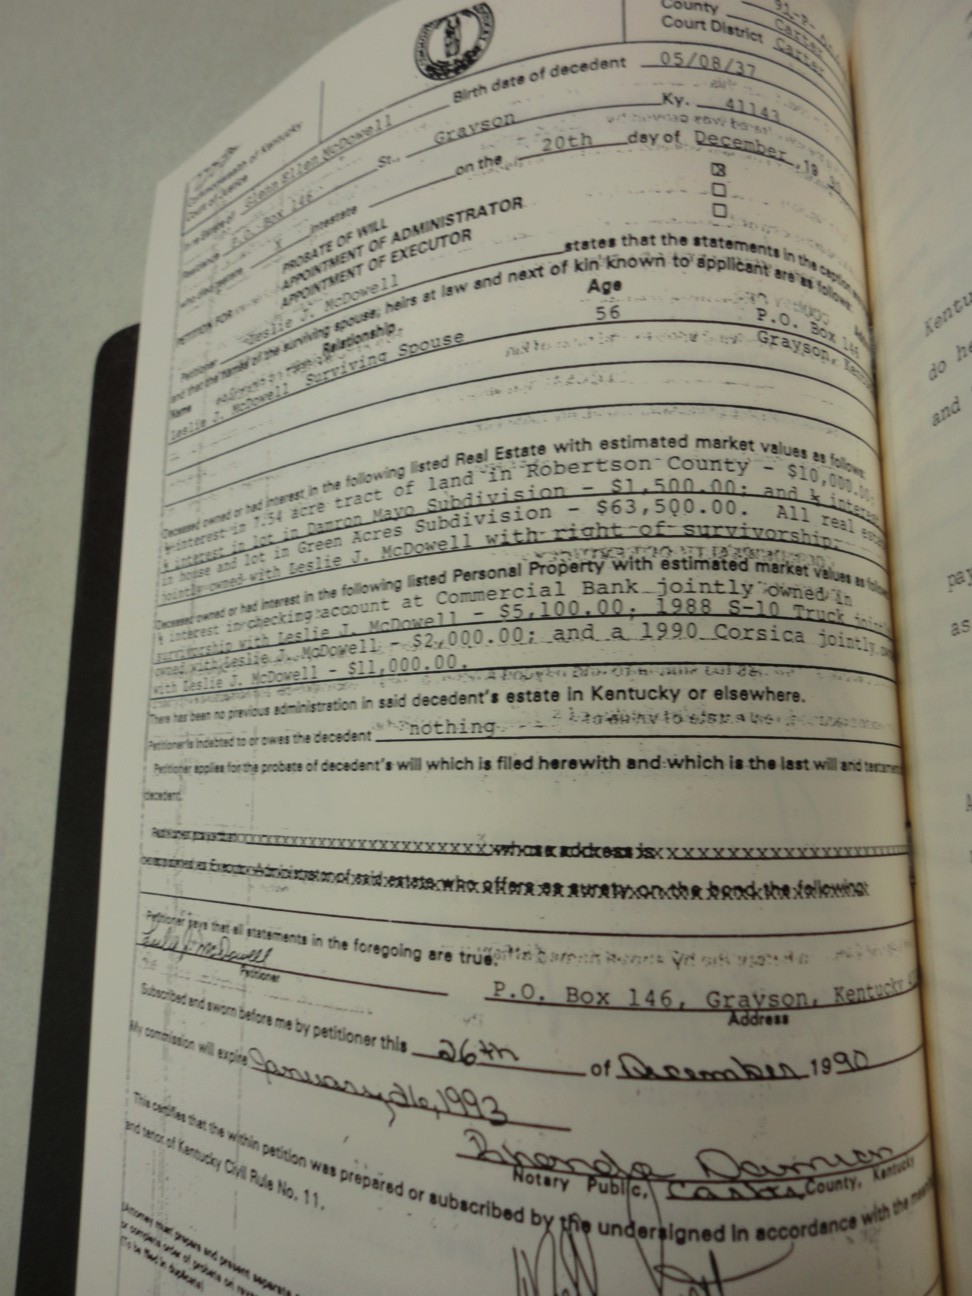 County Carter
Court District Carter
Commonwealth of Kentucky
Court of Justice
Birth date of decedent 05/08/37
In re Estate of Glenn Ellen McDowell
Residence P.O. Box 146 St., Grayson Ky. 41143
who died X intestate on the 20th day of December, 19
PETITION FOR
PROBATE OF WILL ☒
APPOINTMENT OF ADMINISTRATOR ☐
APPOINTMENT OF EXECUTOR ☐
Petitioner Leslie J. McDowell states that the statements in the caption
and that the names of the surviving spouse, heirs at law and next of kin known to applicant are as follows:
Name Relationship Age
Leslie J. McDowell Surviving Spouse 56 P.O. Box 146
Grayson,
Deceased owned or had interest in the following listed Real Estate with estimated market values as follows:
interest in 7.54 acre tract of land in Robertson County - $10,000.00;
½ interest in lot in Damron Mayo Subdivision - $1,500.00; and ½ interest
in house and lot in Green Acres Subdivision - $63,500.00. All real
jointly owned with Leslie J. McDowell with right of survivorship.
Deceased owned or had interest in the following listed Personal Property with estimated market values as
½ interest in checking account at Commercial Bank jointly owned in
survivorship with Leslie J. McDowell - $5,100.00; 1988 S-10 Truck
owned with Leslie J. McDowell - $2,000.00; and a 1990 Corsica jointly
with Leslie J. McDowell - $11,000.00.
There has been no previous administration in said decedent's estate in Kentucky or elsewhere.
Petitioner is indebted to or owes the decedent nothing
Petitioner applies for the probate of decedent's will which is filed herewith and which is the last will and
decedent.
whose address is
Executor/Administrator of said estate who offers as surety on the bond the following:
Petitioner says that all statements in the foregoing are true.
Leslie J. McDowell
Petitioner
P.O. Box 146, Grayson, Kentucky
Address
Subscribed and sworn before me by petitioner this 26th of December 1990
My commission will expire January 26, 1993
Notary Public, Carter County, Kentucky
This certifies that the within petition was prepared or subscribed by the undersigned in accordance with the
and tenor of Kentucky Civil Rule No. 11.
(Attorney must prepare and present
(To be filed in duplicate)
do
and